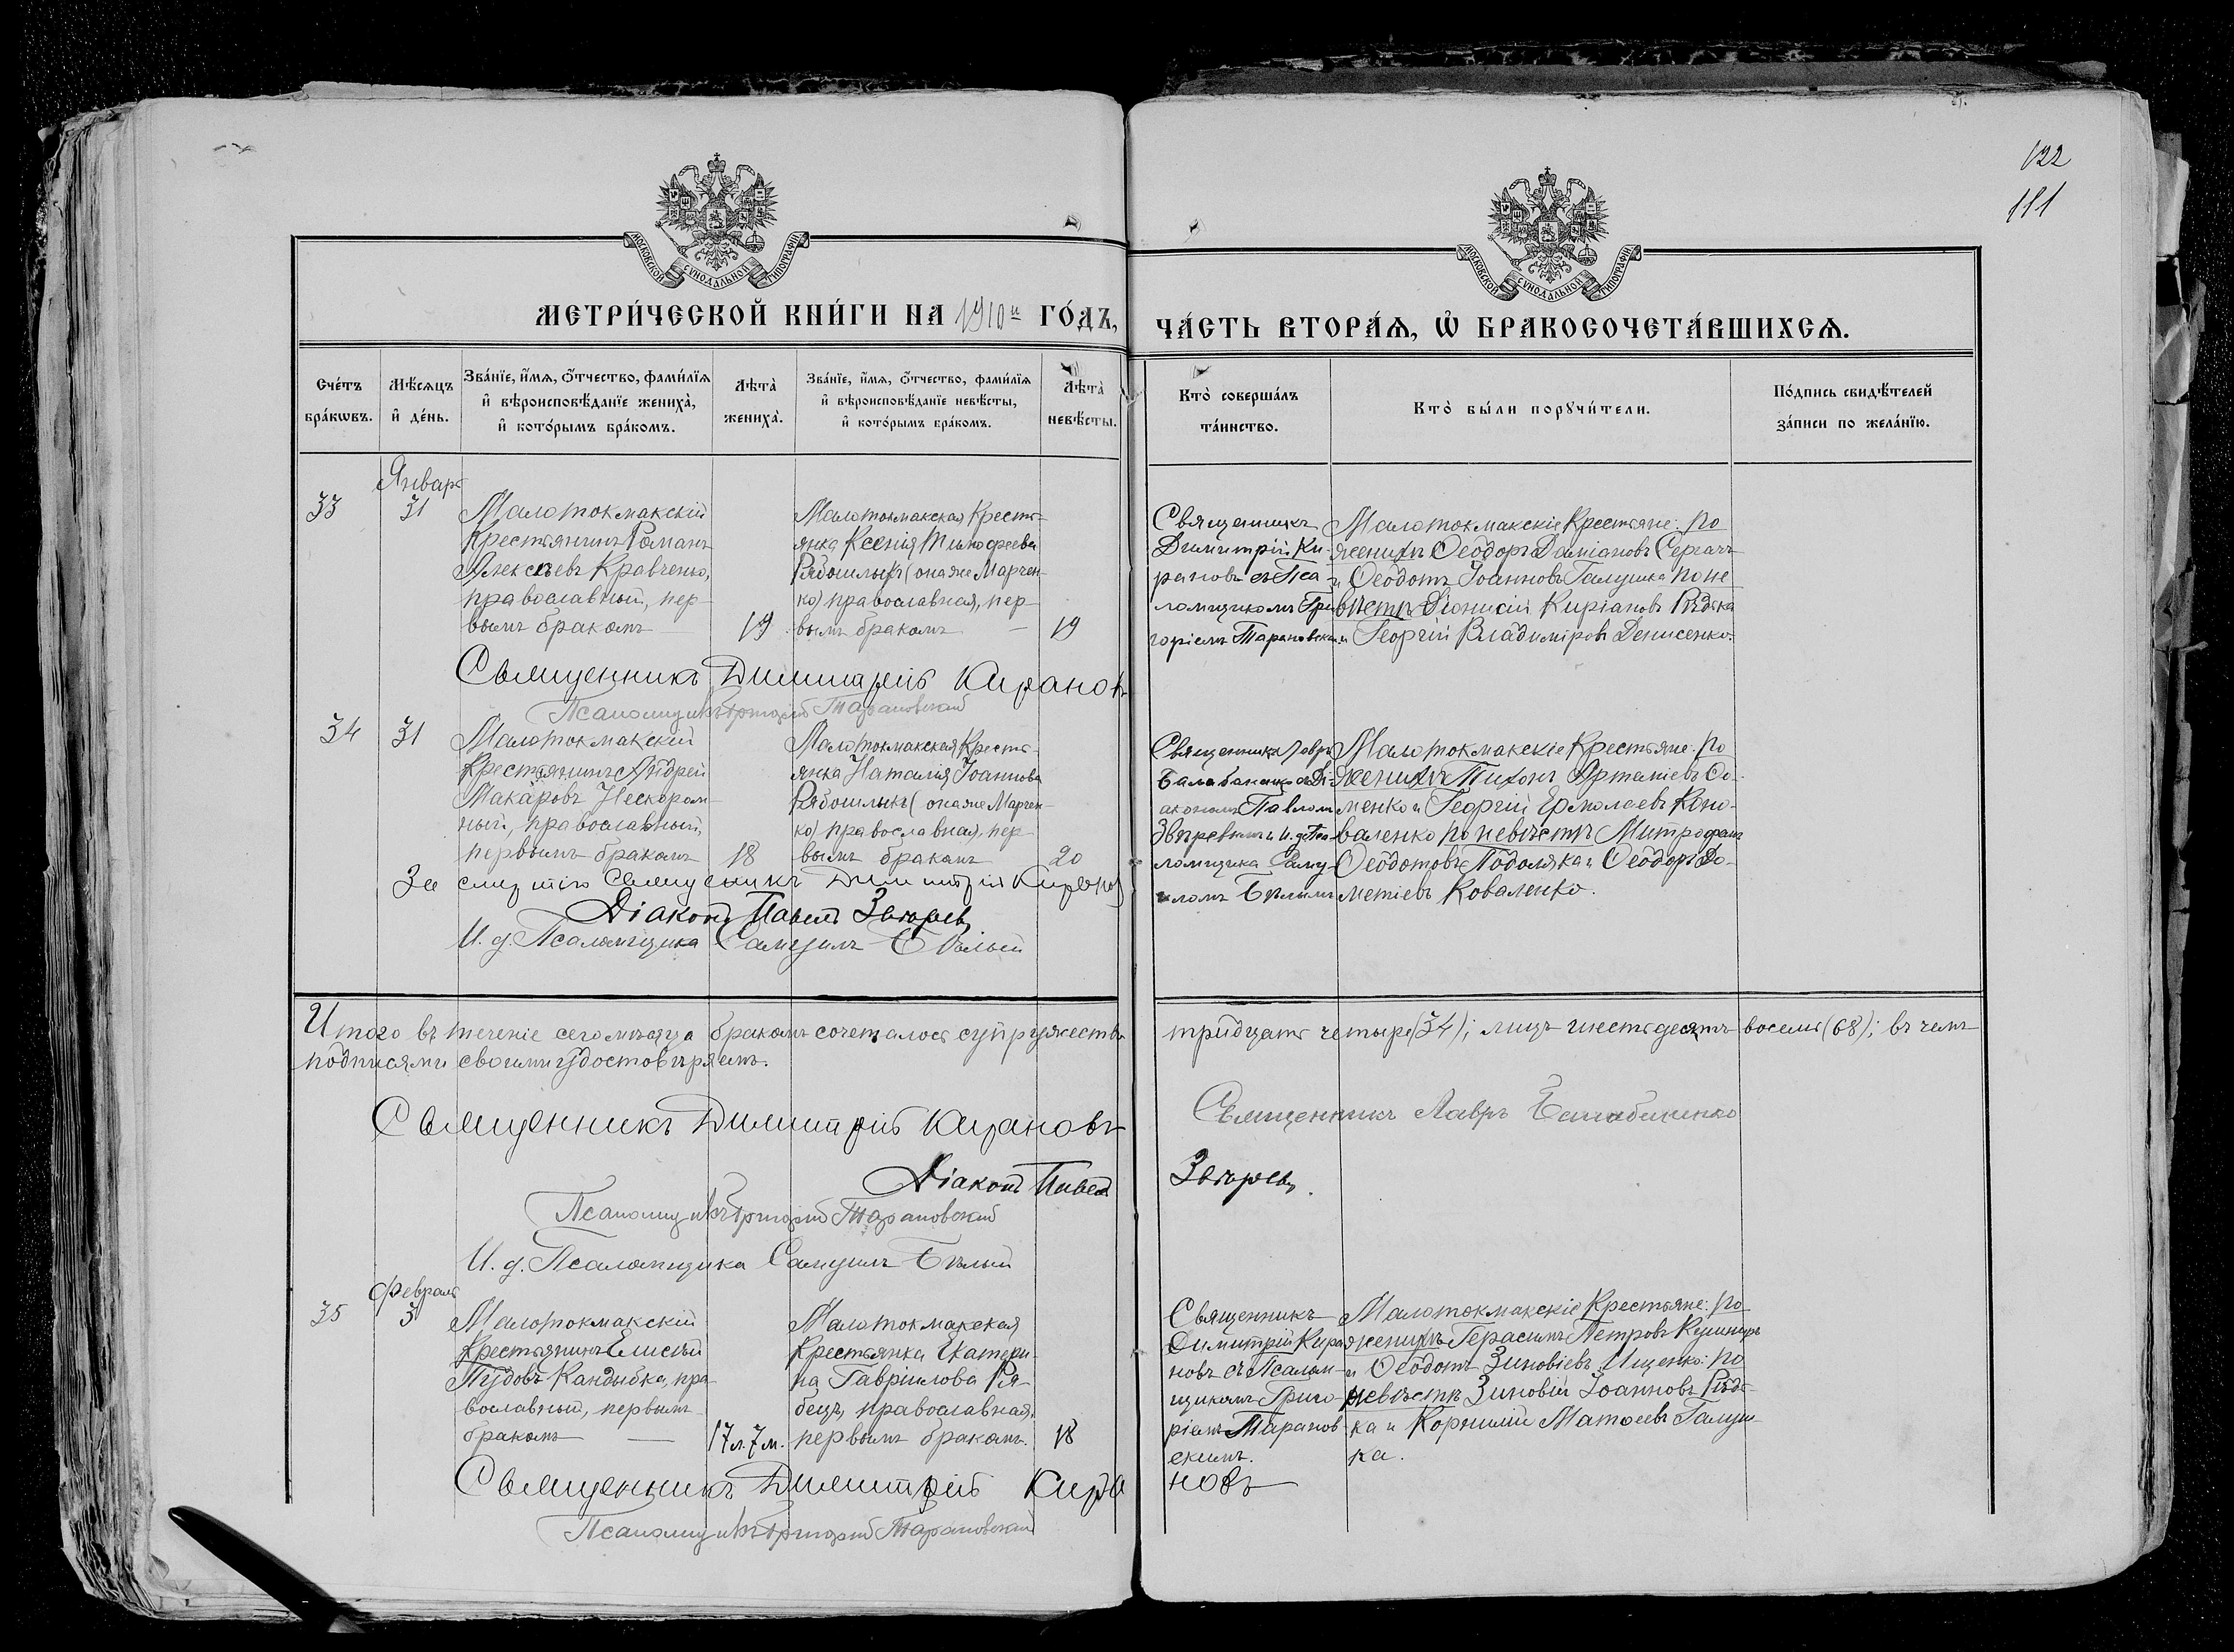 122
181
МОСКОВСКОЙ СУНОДАЛЬНОЙ ТИПОГРАФІИ
МОСКОВСКОЙ СУНОДАЛЬНОЙ ТИПОГРАФІИ
МЕТРИ́ЧЕСКОЙ КНИ́ГИ НА 1910й ГО́ДЪ,
ЧА́СТЬ ВТОРА́Ѧ, Ѡ҆ БРАКОСОЧЕТА́ВШИХСѦ.
Сче́тъ бра́кѡвъ.
Мѣ́сѧцъ и҆ де́нь.
Зва́нїе, и҆́мѧ, ѻ҆́тчество, фами́лїѧ
и҆ вѣроисповѣ́данїе жениха̀,
и҆ кото́рымъ бра́комъ.
Лѣта̀ жениха̀.
Зва́нїе, и҆́мѧ, ѻ҆́тчество, фами́лїѧ
и҆ вѣроисповѣ́данїе невѣ́сты,
и҆ кото́рымъ бра́комъ.
Лѣта̀ невѣ́сты.
Кто̀ соверша́лъ та́инство.
Кто̀ бы́ли порꙋчи́тели.
По́дпись свидѣ́телей за́писи по жела́нїю.
Январь
33
31
Малотокмакскій
Крестьянинъ Романъ
Алексѣевъ Кравченко,
православный, пер-
вымъ бракомъ
19
Малотокмакская Кресть-
янка Ксенія Тимофеева
Рябошлыкъ (она же Марчен-
ко) православная, пер-
вымъ бракомъ
19
Священникъ
Димитрій Ки-
рановъ съ Пса-
ломщикомъ Гри-
горіемъ Тарановскимъ
Малотокмакскіе Крестьяне: по
женихѣ Ѳеодоръ Даміановъ Сергачъ
и Ѳеодотъ Іоанновъ Галушка по не
вѣстѣ Діонисій Киріановъ Рѣдька
и Георгій Владиміровъ Денисенко.
Священникъ Димитрій Кирановъ
Псаломщикъ Григорій Тарановскій
34
31
Малотокмакскій
Крестьянинъ Андрей
Макаровъ Нескором-
ный, православный,
первымъ бракомъ
18
Малотокмакская Кресть-
янка Наталія Іоаннова
Рябошлыкъ (она же Марчен-
ко) православная, пер-
вымъ бракомъ
20
Священникъ Лавръ
Балабаненко съ Ді-
акономъ Павломъ
Звѣревымъ и И. д. Пса-
ломщика Саму-
иломъ Бѣлымъ
Малотокмакскіе Крестьяне: по
женихѣ Тихонъ Артеміевъ Ѳо-
менко и Георгій Ермолаевъ Коно-
валенко по невѣстѣ Митрофанъ
Ѳеодотовъ Подоляка и Ѳеодоръ До-
метіевъ Коваленко.
За смертію Священникъ Димитрій Кирановъ
Діаконъ Павелъ Звѣревъ
И. д. Псаломщика Самуилъ Бѣлый
Итого въ теченіе сего мѣсяца бракомъ сочеталось супружествъ тридцать четыре (34); лицъ шестьдесятъ восемь (68); въ чемъ
подписями своими удостовѣряемъ.
Священникъ Димитрій Кирановъ
Священникъ Лавръ Балабаненко
Діаконъ Павелъ Звѣревъ.
Псаломщикъ Григорій Тарановскій
И. д. Псаломщика Самуилъ Бѣлый
Февраль
35
3
Малотокмакскій
Крестьянинъ Елисѣй
Пудовъ Кандыбка, пра-
вославный, первымъ
бракомъ
17 л. 7 м.
Малотокмакская
Крестьянка Екатери-
на Гавріилова Ря-
бецъ, православная,
первымъ бракомъ.
18
Священникъ
Димитрій Кира-
новъ съ Псалом-
щикомъ Григо-
ріемъ Таранов-
скимъ.
Малотокмакскіе Крестьяне: по
женихѣ Герасимъ Петровъ Кушниръ
и Ѳеодотъ Зиновіевъ Ищенко: по
невѣстѣ Зиновій Іоанновъ Рѣдь-
ка и Корнилій Матѳеевъ Галуш-
ка.
Священникъ Димитрій Кирановъ
Псаломщикъ Григорій Тарановскій